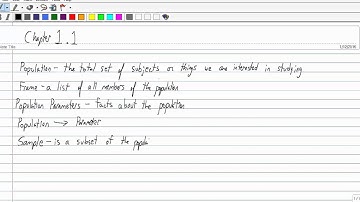 Chapter 1.1
Population - the total set of subjects or things we are interested in studying
Frame - a list of all members of the population
Population Parameters - facts about the population
Population → Parameter
Sample - is a subset of the popula